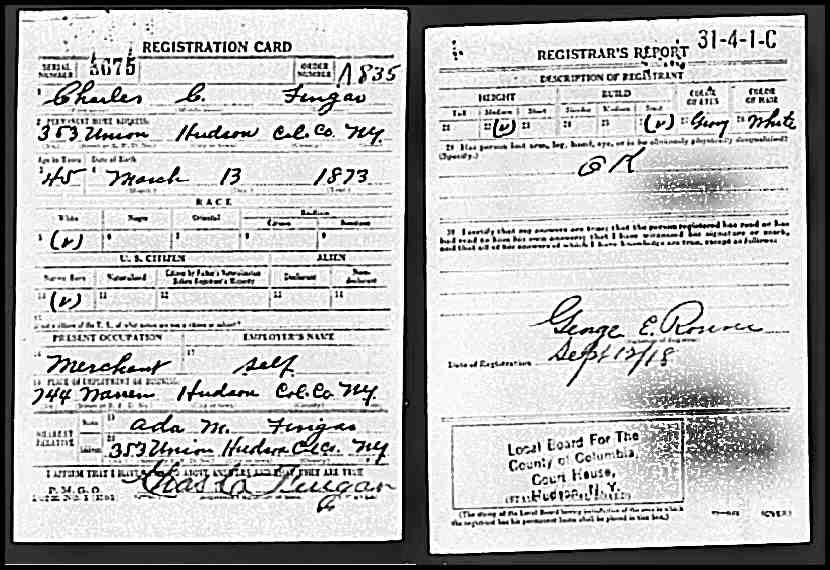 REGISTRATION CARD
SERIAL NUMBER 3675 ORDER NUMBER A835
1 Charles C. Fingar
2 PERMANENT HOME ADDRESS:
353 Union Hudson Col. Co. NY.
Age in Years Date of Birth
3 45 4 March 13 1873
RACE
White Negro Oriental Indian
Citizen Noncitizen
5 (v) 6 7 8 9
U. S. CITIZEN ALIEN
Native Born Naturalized Citizen by Father's Naturalization Before Registrant's Majority Declarant Non-declarant
10 (v) 11 12 13 14
15
If not a citizen of the U. S., of what nation are you a citizen or subject?
PRESENT OCCUPATION EMPLOYER'S NAME
16 Merchant 17 self
18 PLACE OF EMPLOYMENT OR BUSINESS:
744 Warren Hudson Col. Co. NY.
NEAREST RELATIVE Name 19 Ada M. Fingar
Address 20 353 Union Hudson C. Co. NY
I AFFIRM THAT I HAVE VERIFIED ABOVE ANSWERS AND THAT THEY ARE TRUE
P. M. G. O.
Fingar
REGISTRAR'S REPORT 31-4-1-C
DESCRIPTION OF REGISTRANT
HEIGHT BUILD COLOR OF EYES COLOR OF HAIR
Tall Medium Short Slender Medium Stout
21 22 (v) 23 24 25 26 (v) 27 Gray 28 White
29 Has person lost arm, leg, hand, eye, or is he obviously physically disqualified?
(Specify.) OK
30 I certify that my answers are true; that the person registered has read or has
had read to him his own answers; that I have witnessed his signature or mark,
and that all of his answers of which I have knowledge are true, except as follows:
George E.
Date of Registration Sept 12/18
Local Board For The
County of Columbia,
Court House,
Hudson, N. Y.
(The stamp of the Local Board having jurisdiction of the area in which
the registrant has his permanent home shall be placed in this box.)
(OVER)